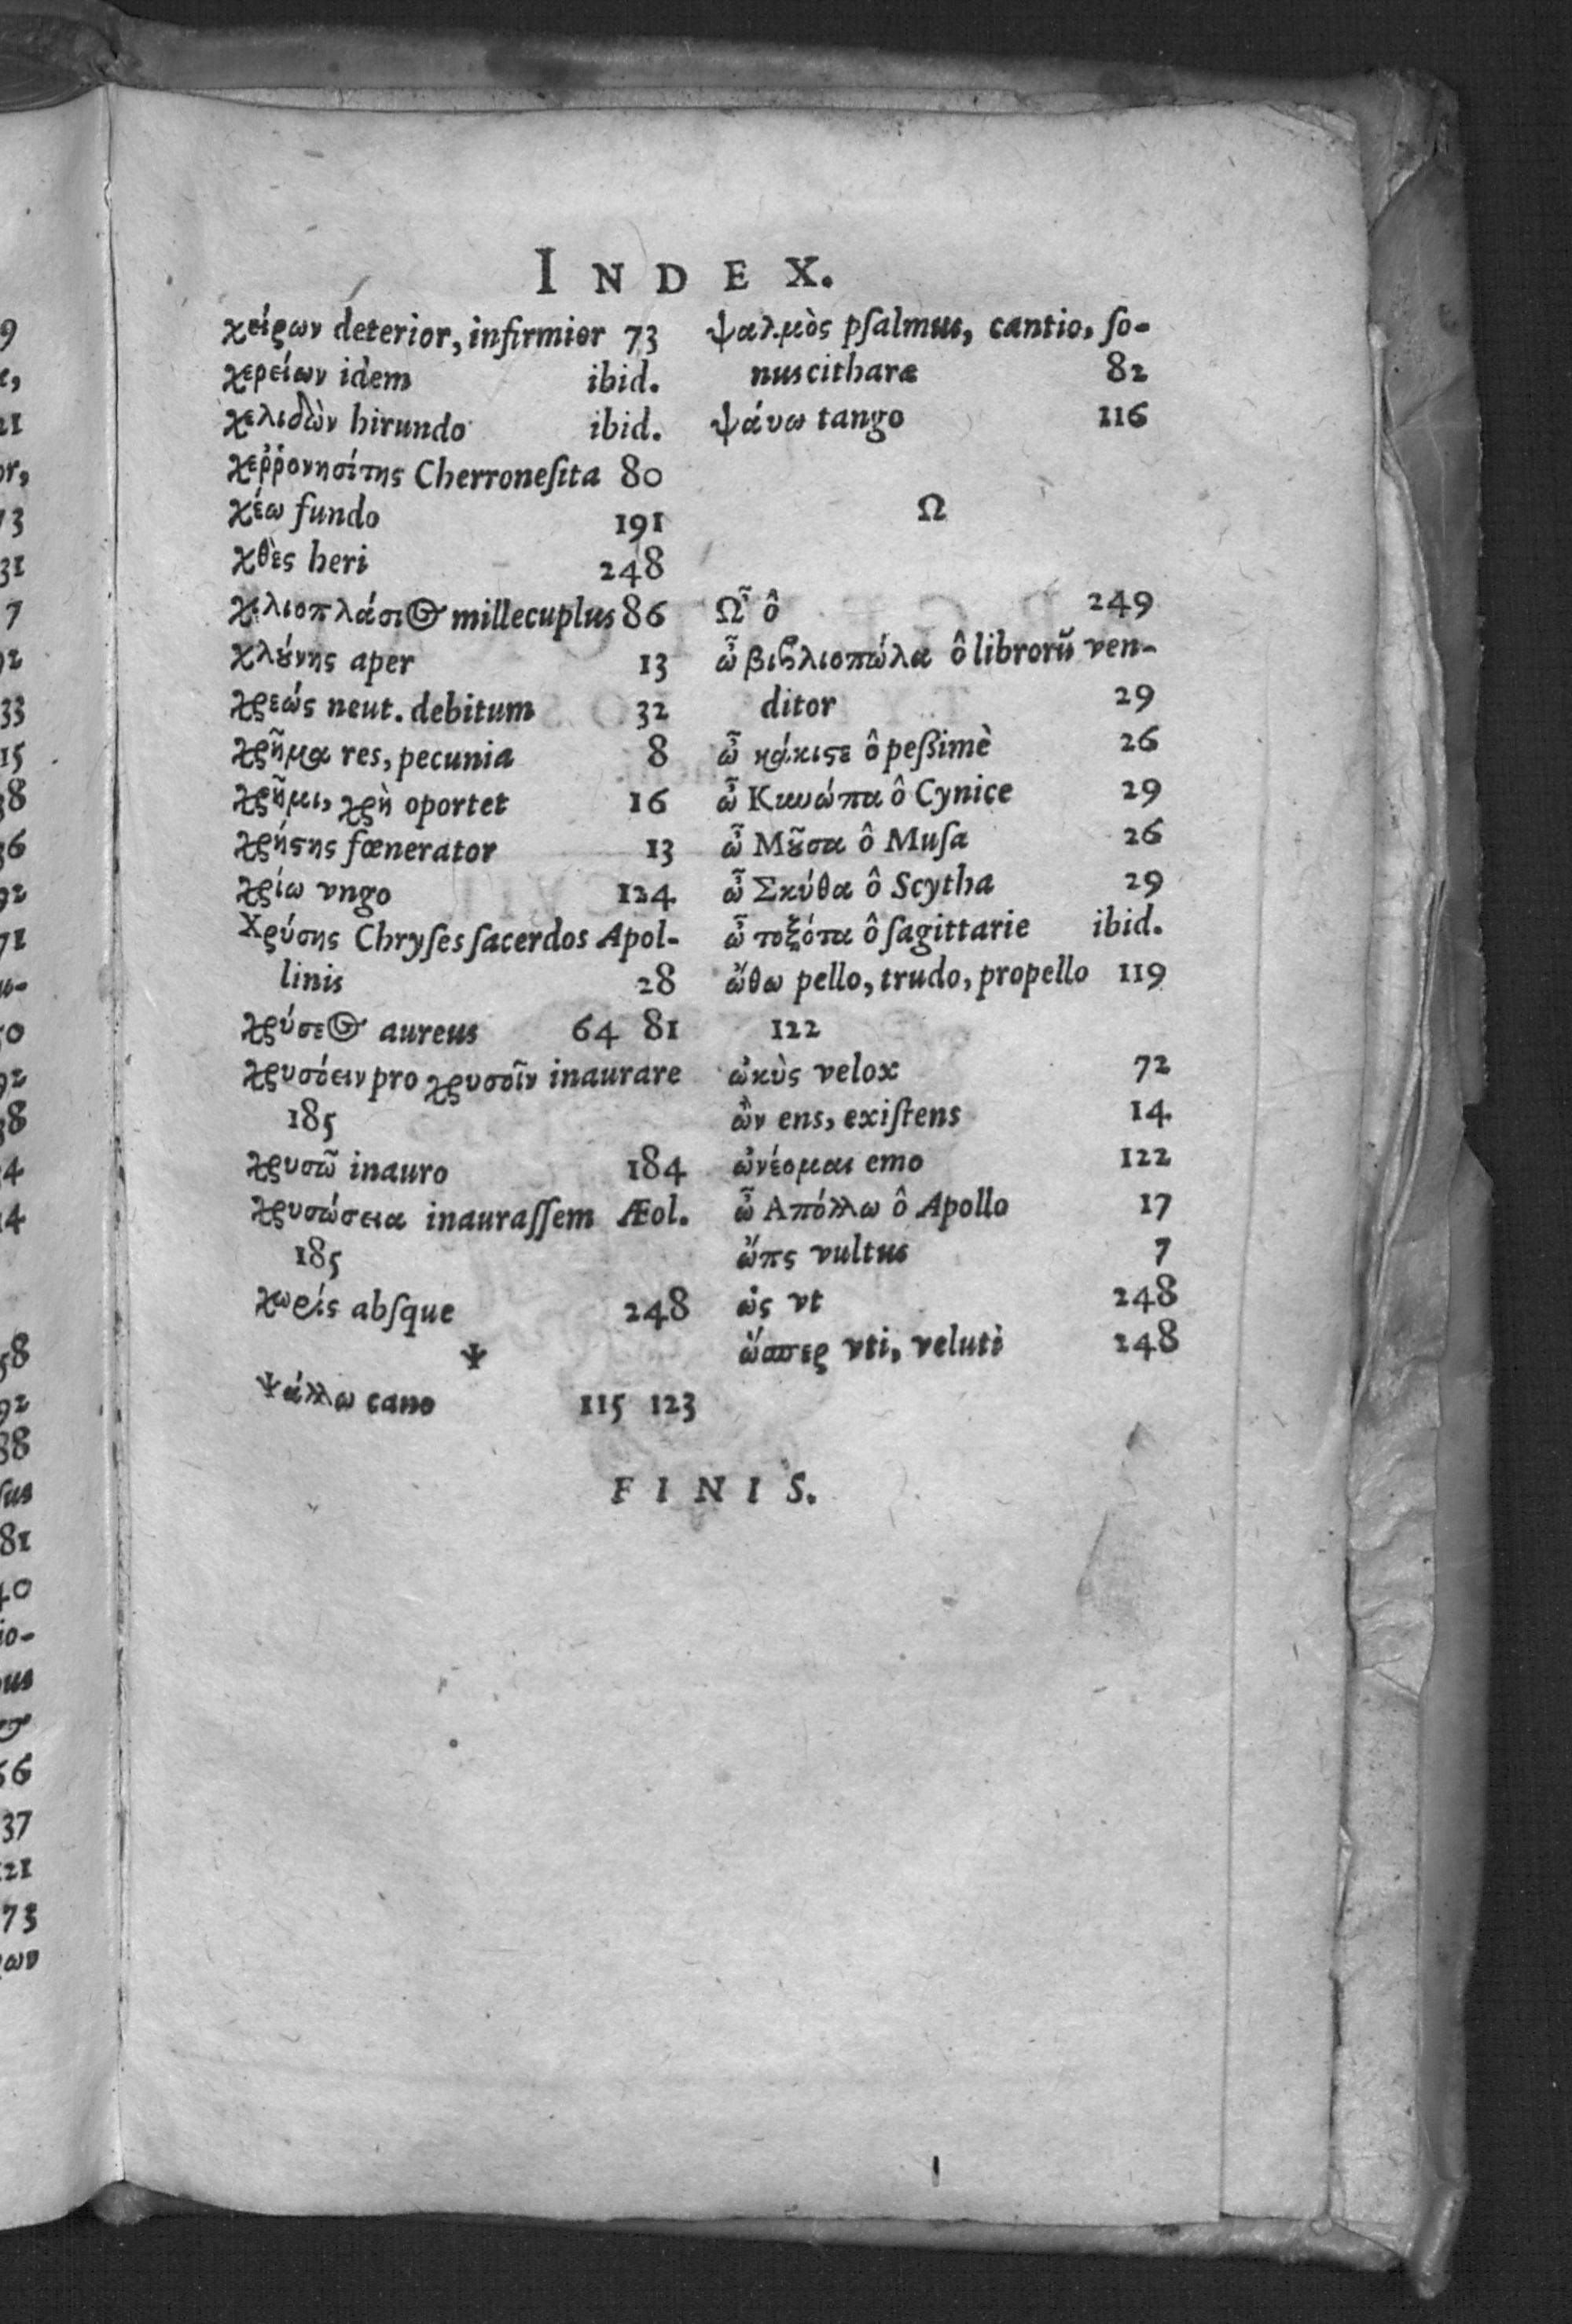 INDEX.
χείρων deterior, infirmior 73
χερείων idem ibid.
χελιδὼν hirundo ibid.
χεῤῥονησίτης Cherronesita 80
χέω fundo 191
χθὲς heri 248
χιλιοπλάσιος millecuplus 86
χλούνης aper 13
χρεώς neut. debitum 32
χρῆμα res, pecunia 8
χρῆμι, χρὴ oportet 16
χρήστης fœnerator 13
χρίω vngo 124
Χρύσης Chryses sacerdos Apol-
linis 28
χρύσεος aureus 64 81
χρυσόειν pro χρυσοῖν inaurare
185
χρυσῶ inauro 184
χρυσώσεια inaurassem Æol.
185
χωρίς absque 248
Ψ
Ψάλλω cano 115 123
ψαλμὸς psalmus, cantio, so-
nus citharæ 82
ψάυω tango 116
Ω
Ὦ ô 249
ὦ βιβλιοπώλα ô librorũ ven-
ditor 29
ὦ κάκιστε ô pessimè 26
ὦ Κυνώπα ô Cynice 29
ὦ Μοῦσα ô Musa 26
ὦ Σκύθα ô Scytha 29
ὦ τοξότα ô sagittarie ibid.
ὤθω pello, trudo, propello 119
122
ὠκὺς velox 72
ὢν ens, existens 14
ὠνέομαι emo 122
ὦ Απόλλω ô Apollo 17
ὤπς vultus 7
ὡς vt 248
ὥσπερ vti, velutì 248
FINIS.